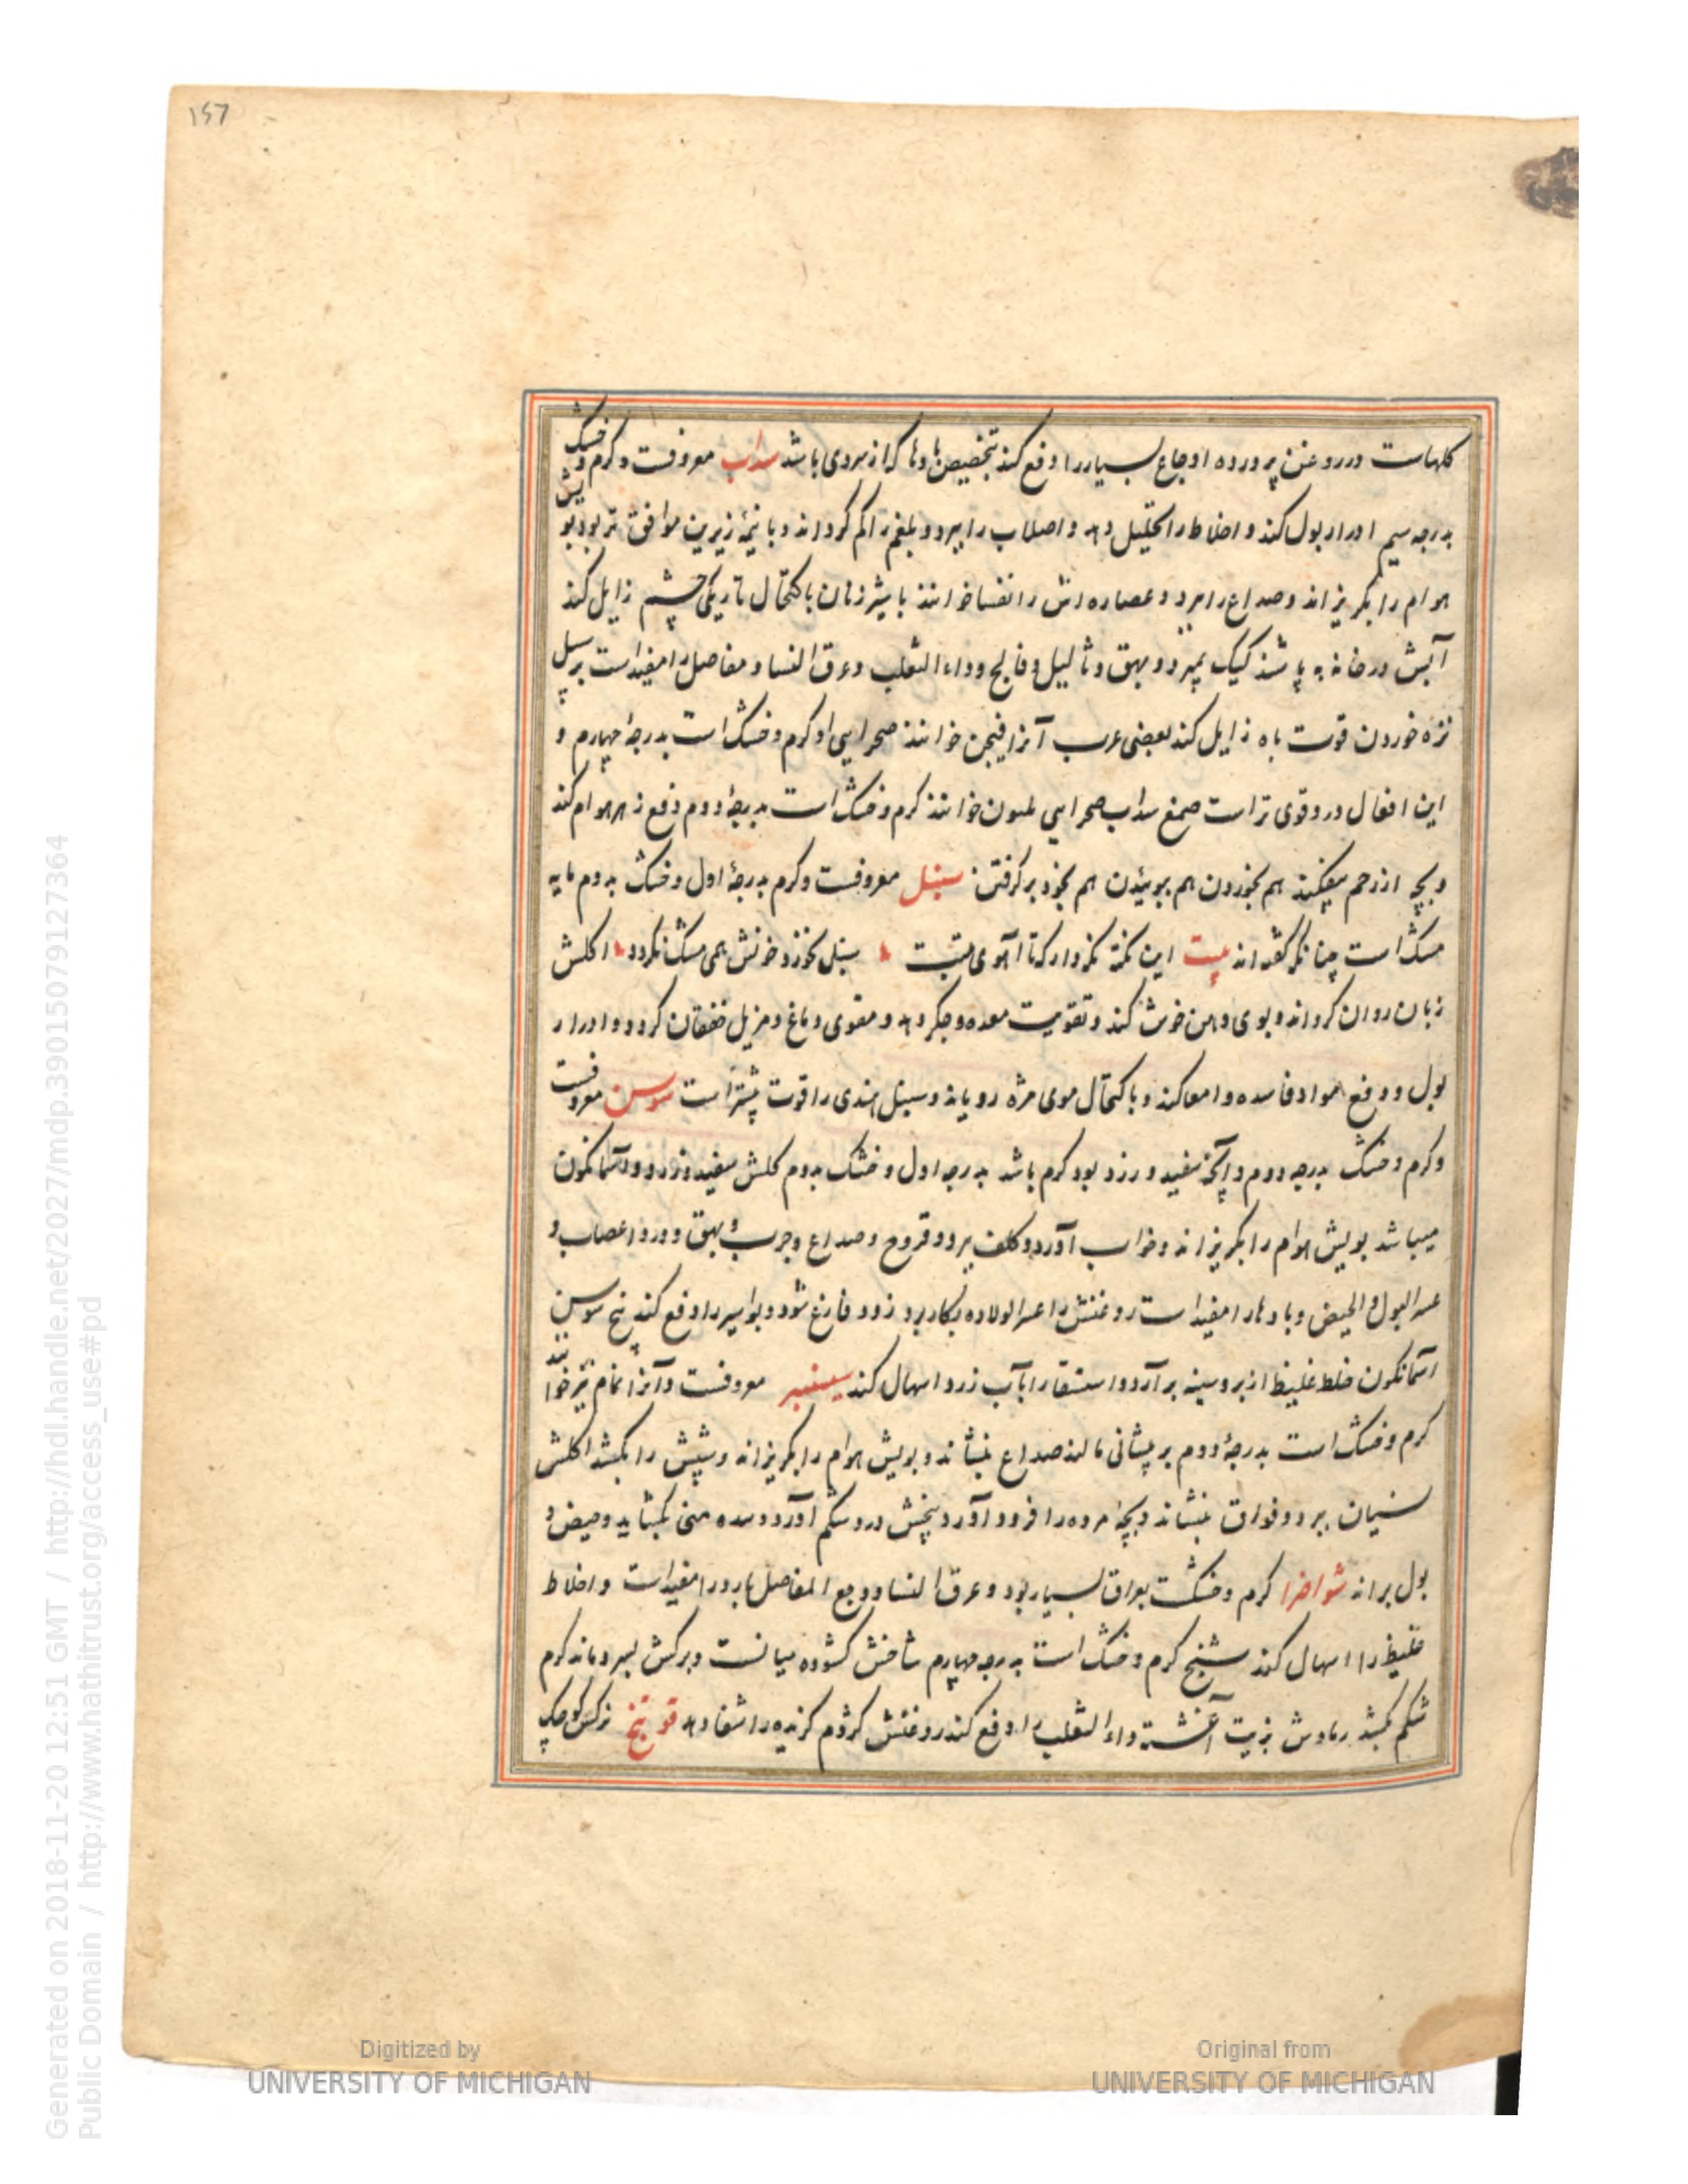 ۱۵۷
کلهاست در روغن پرورده اوجاع بسیار را دفع کند بتخصیص بادها که از سردی باشد سداب معروفست و کرم و خشک
بدرجه سیم ادرار بول کند و اخلاط را تحلیل دهد و اصلاب را ببرد و بلغم را کم کرداند و با نیمه زیرین موافق تر بود بویش
هوام را بکریزاند و صداع را ببرد و عصاره اش را نفسا خوانند با شیر زنان باکتحال تاریکی چشم زایل کند
آبش در خانه به پاشند کیک بمیرد و بهق و ثالیل و فالج و داء الثعلب و عرق النسا و مفاصل را مفیدست بر سبیل
تره خوردن قوت باه زایل کند بعضی عرب آنرا فیجن خوانند صحرایی او کرم و خشک است بدرجه چهارم و
این افعال درو قوی تر است صمغ سداب صحرایی خوانند کرم و خشک است بدرجه دوم دفع زهر هوام کند
و بچه از رحم بیفکند هم بخوردن هم ببوییدن هم بخود برکرفتن سنبل معروفست و کرم بدرجه اول و خشک بدوم مایه
مسک است چنانکه کفته اند بیت این نکته نکه دار که تا آهوی تبت سنبل نخورد خونش همی مشک نکردد اکلش
زبان روان کرداند و بوی دهن خوش کند و تقویت معده و جکر دهد و مقوی دماغ و مزیل خفقان کردد و ادرار
بول و دفع مواد فاسده و امعا کند و باکتحال موی مژه رویاند و سنبل هندی را قوت بیشتر است سوسن معروفست
و کرم و خشک بدرجه دوم و آنچه سفید و زرد بود کرم باشد بدرجه اول و خشک بدوم کلش سفید و زرد و آسمانکون
میباشد بویش هوام را بکریزاند و خواب آورد و کلف ببرد و قروح و صداع و جرب و بهق و درد اعصاب و
عسر البول و الحیض و بادها را مفید است روغنش را عسر الولاده بکار برد زود فارغ شود و بواسیر را دفع کند بیخ سوسن
آسمانکون خلط غلیظ از بر و سینه برآرد و استسقا را با آب زرد اسهال کند سیسنبر معروفست و آنرا نمام نیز خوانند
کرم و خشک است بدرجه دوم بر پیشانی مالند صداع بنشاند و بویش هوام را بکریزاند و شپش را بکشد اکلش
نسیان ببرد و فواق بنشاند و بچه مرده را فرود آورد و پیچش درد شکم آورد و سده منی بکشاید و حیض و
بول براند شواصرا کرم و خشکست بواق بسیار بود و عرق النسا و وجع المفاصل بارد را مفیدست و اخلاط
غلیظ را اسهال کند شیح کرم و خشک است بدرجه چهارم شاخش کشوده میانست و برکش بسرو ماند کرم
شکم بکشد رمادش بزیت آغشته داء الثعلب را دفع کند روغنش کژدم کزیده را شفا دهد
Digitized by
UNIVERSITY OF MICHIGAN
Original from
UNIVERSITY OF MICHIGAN
Generated on 2018-11-20 12:51 GMT / http://hdl.handle.net/2027/mdp.39015079127364
Public Domain / http://www.hathitrust.org/access_use#pd